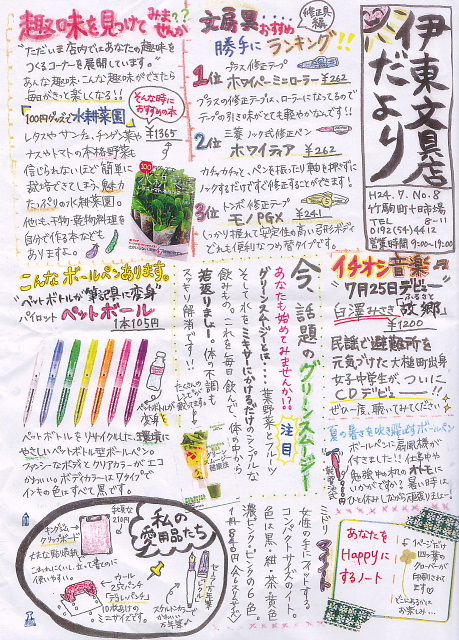 伊東文具店
だより
H24.7. No.8
竹駒町十日市場
8-11
TEL 0192(54)4412
営業時間 9:00~19:00
趣味を見つけてみませんか??
"ただいま店内ではあなたの趣味を
つくるコーナーを展開しています。"
あんな趣味・こんな趣味ができたら
毎日がきっと楽しくなる!!
そんな時におすすめの本
「100円グッズで水耕菜園」
¥1365
レタスやサンチュ、チンゲン菜や
ナスやトマトの本格野菜も
信じられないほど簡単に
栽培できてしまう、魅力
たっぷりの水耕菜園。
他にも、干物・乾物料理を
自分で作る本なども
ありますよ。
文房具おすすめ
修正具編
勝手にランキング!!
1位 プラス 修正テープ
ホワイパーミニローラー ¥262
プラスの修正テープは、ローラーになってるので
テープの引き味がとても軽やかなんです!!
2位 三菱 ノック式修正ペン
ホワイティア ¥262
カチャカチャと、ペンを振ったり軸を押さずに
ノックするだけですぐ修正することができます!
3位 トンボ 修正テープ
モノPGX ¥241
しっかり握れて安定性の高い台形ボディ
どれも便利なつめ替タイプです。
こんなボールペンあります。
"ペットボトルが筆記具に変身"
パイロット ペットボール
1本105円
ペットボトルが変身
ペットボトルをリサイクルした、環境に
やさしいペットボトル型ボールペン。
ファンシーなボディとクリアカラーがエコ
かわいい。ボディカラーは7タイプで
インキの色はすべて黒です。
今、話題のグリーンスムージー
あなたも始めてみませんか!?
注目
グリーンスムージーとは…
葉野菜とフルーツ
そして水をミキサーにかけるだけのシンプルな
飲みもの。これを毎日飲んで、体の中から
若返りましょー。体の不調も
スッキリ解消です!!
たくさんのレシピ本が載ってます!
イチオシ音楽
7月25日デビュー
臼澤みさき「故郷」
ふるさと
¥1200
民謡で避難所を
元気づけた大槌町出身
女子中学生が、ついに
CDデビュー!!
ぜひ一度、聴いてみてください
夏の暑さを吹き飛ばすボールペン
ボールペンに扇風機が
付きました!!仕事中や
勉強中のオトモに
いかがですか?暑い時は
ひと休みしながら頑張りましょー
私の愛用品たち
キングジム
クリップボード
和風な
210円
ウール
25穴パンチ
「デコレパンチ」
10枚あけの
ミニサイズです。
セーラー万年筆
スケルトンカラーがかわいい
万年筆
ミドリ
マイノート
女性の手にフィットする
コンパクトサイズのノート。
色は黒・紺・茶・黄色
濃ピンク・ピンクの6色。
1冊840円
あなたを
Happyに
するノート
1ページだけ
四つ葉の
クローバーが
印刷されて
ます♡
どこにあるかは
お楽しみ…